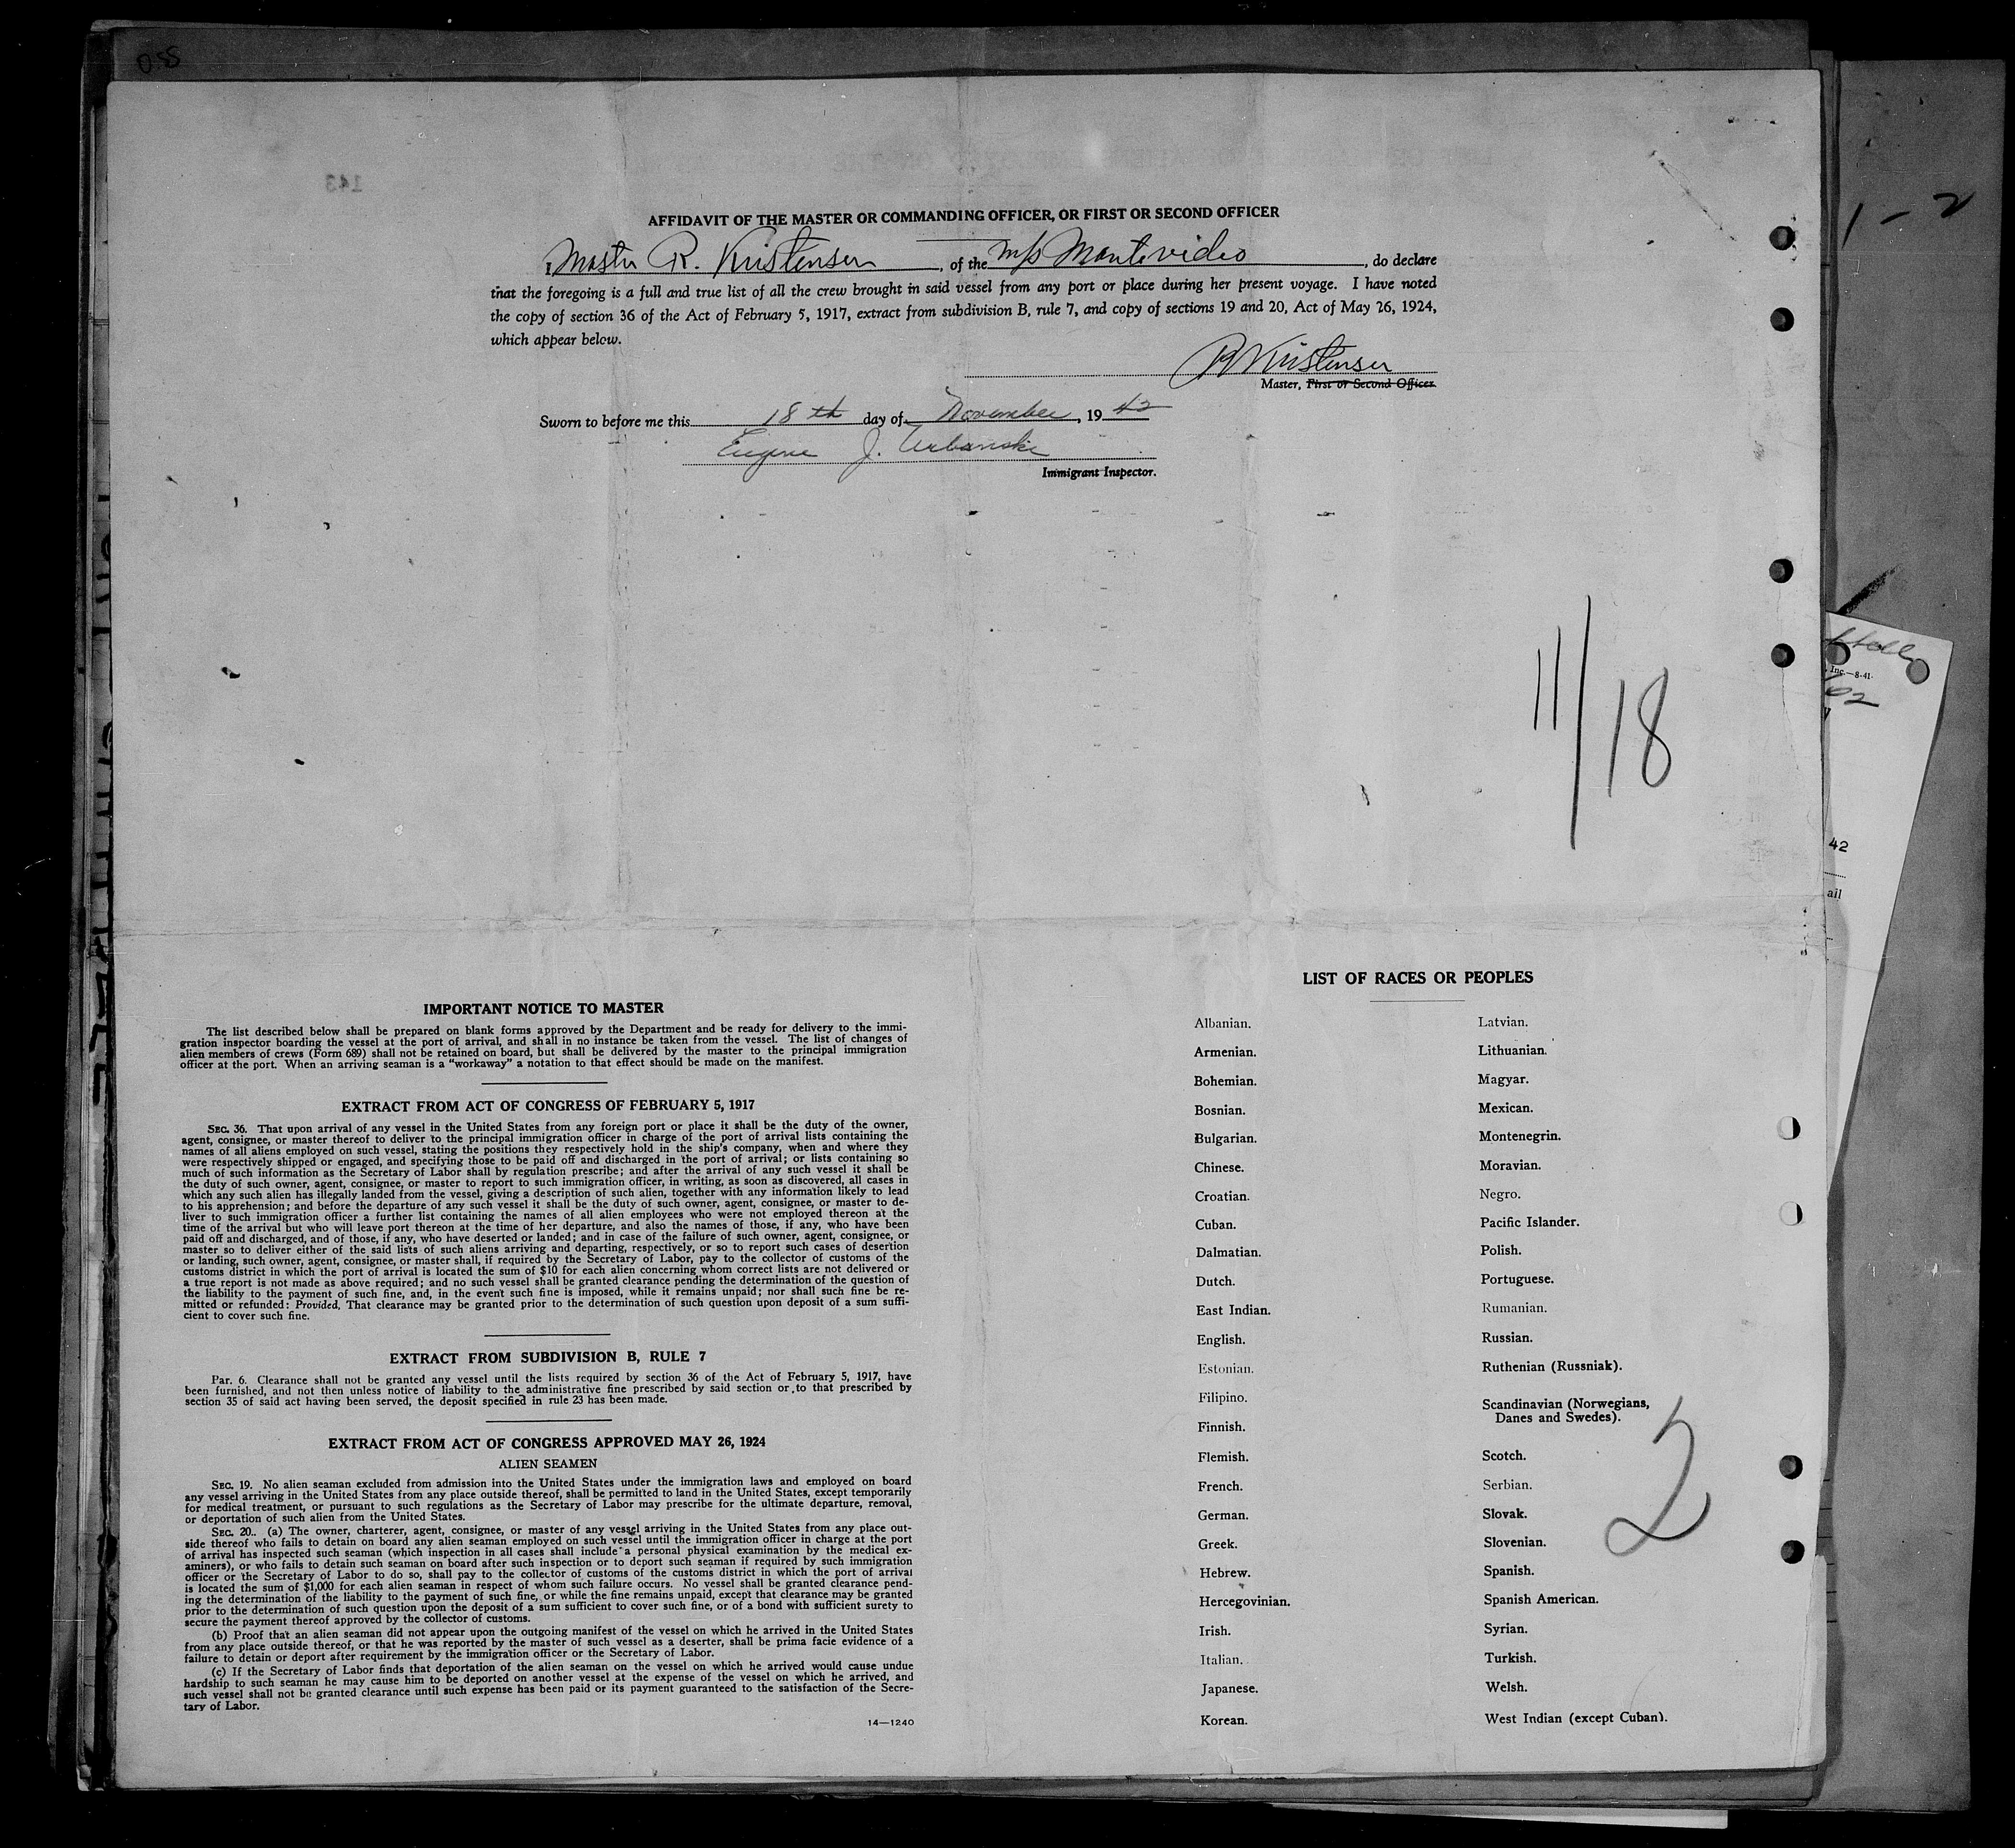 055
143
1-2
AFFIDAVIT OF THE MASTER OR COMMANDING OFFICER, OR FIRST OR SECOND OFFICER
I, Master R. Kristensen, of the m/s Montevideo, do declare
that the foregoing is a full and true list of all the crew brought in said vessel from any port or place during her present voyage. I have noted
the copy of section 36 of the Act of February 5, 1917, extract from subdivision B, rule 7, and copy of sections 19 and 20, Act of May 26, 1924,
which appear below.
R Kristensen
Master, First or Second Officer.
Sworn to before me this 18th day of November, 1942
Eugene J. Urbanski
Immigrant Inspector.
11/18
Inc.—8-41
02
42
ail
IMPORTANT NOTICE TO MASTER
The list described below shall be prepared on blank forms approved by the Department and be ready for delivery to the immi-
gration inspector boarding the vessel at the port of arrival, and shall in no instance be taken from the vessel. The list of changes of
alien members of crews (Form 689) shall not be retained on board, but shall be delivered by the master to the principal immigration
officer at the port. When an arriving seaman is a "workaway" a notation to that effect should be made on the manifest.
EXTRACT FROM ACT OF CONGRESS OF FEBRUARY 5, 1917
SEC. 36. That upon arrival of any vessel in the United States from any foreign port or place it shall be the duty of the owner,
agent, consignee, or master thereof to deliver to the principal immigration officer in charge of the port of arrival lists containing the
names of all aliens employed on such vessel, stating the positions they respectively hold in the ship's company, when and where they
were respectively shipped or engaged, and specifying those to be paid off and discharged in the port of arrival; or lists containing so
much of such information as the Secretary of Labor shall by regulation prescribe; and after the arrival of any such vessel it shall be
the duty of such owner, agent, consignee, or master to report to such immigration officer, in writing, as soon as discovered, all cases in
which any such alien has illegally landed from the vessel, giving a description of such alien, together with any information likely to lead
to his apprehension; and before the departure of any such vessel it shall be the duty of such owner, agent, consignee, or master to de-
liver to such immigration officer a further list containing the names of all alien employees who were not employed thereon at the
time of the arrival but who will leave port thereon at the time of her departure, and also the names of those, if any, who have been
paid off and discharged, and of those, if any, who have deserted or landed; and in case of the failure of such owner, agent, consignee, or
master so to deliver either of the said lists of such aliens arriving and departing, respectively, or so to report such cases of desertion
or landing, such owner, agent, consignee, or master shall, if required by the Secretary of Labor, pay to the collector of customs of the
customs district in which the port of arrival is located the sum of $10 for each alien concerning whom correct lists are not delivered or
a true report is not made as above required; and no such vessel shall be granted clearance pending the determination of the question of
the liability to the payment of such fine, and, in the event such fine is imposed, while it remains unpaid; nor shall such fine be re-
mitted or refunded: Provided, That clearance may be granted prior to the determination of such question upon deposit of a sum suffi-
cient to cover such fine.
EXTRACT FROM SUBDIVISION B, RULE 7
Par. 6. Clearance shall not be granted any vessel until the lists required by section 36 of the Act of February 5, 1917, have
been furnished, and not then unless notice of liability to the administrative fine prescribed by said section or to that prescribed by
section 35 of said act having been served, the deposit specified in rule 23 has been made.
EXTRACT FROM ACT OF CONGRESS APPROVED MAY 26, 1924
ALIEN SEAMEN
SEC. 19. No alien seaman excluded from admission into the United States under the immigration laws and employed on board
any vessel arriving in the United States from any place outside thereof, shall be permitted to land in the United States, except temporarily
for medical treatment, or pursuant to such regulations as the Secretary of Labor may prescribe for the ultimate departure, removal,
or deportation of such alien from the United States.
SEC. 20. (a) The owner, charterer, agent, consignee, or master of any vessel arriving in the United States from any place out-
side thereof who fails to detain on board any alien seaman employed on such vessel until the immigration officer in charge at the port
of arrival has inspected such seaman (which inspection in all cases shall include a personal physical examination by the medical ex-
aminers), or who fails to detain such seaman on board after such inspection or to deport such seaman if required by such immigration
officer or the Secretary of Labor to do so, shall pay to the collector of customs of the customs district in which the port of arrival
is located the sum of $1,000 for each alien seaman in respect of whom such failure occurs. No vessel shall be granted clearance pend-
ing the determination of the liability to the payment of such fine, or while the fine remains unpaid, except that clearance may be granted
prior to the determination of such question upon the deposit of a sum sufficient to cover such fine, or of a bond with sufficient surety to
secure the payment thereof approved by the collector of customs.
(b) Proof that an alien seaman did not appear upon the outgoing manifest of the vessel on which he arrived in the United States
from any place outside thereof, or that he was reported by the master of such vessel as a deserter, shall be prima facie evidence of a
failure to detain or deport after requirement by the immigration officer or the Secretary of Labor.
(c) If the Secretary of Labor finds that deportation of the alien seaman on the vessel on which he arrived would cause undue
hardship to such seaman he may cause him to be deported on another vessel at the expense of the vessel on which he arrived, and
such vessel shall not be granted clearance until such expense has been paid or its payment guaranteed to the satisfaction of the Secre-
tary of Labor.
14—1240
LIST OF RACES OR PEOPLES
Albanian.
Armenian.
Bohemian.
Bosnian.
Bulgarian.
Chinese.
Croatian.
Cuban.
Dalmatian.
Dutch.
East Indian.
English.
Estonian.
Filipino.
Finnish.
Flemish.
French.
German.
Greek.
Hebrew.
Hercegovinian.
Irish.
Italian.
Japanese.
Korean.
Latvian.
Lithuanian.
Magyar.
Mexican.
Montenegrin.
Moravian.
Negro.
Pacific Islander.
Polish.
Portuguese.
Rumanian.
Russian.
Ruthenian (Russniak).
Scandinavian (Norwegians,
Danes and Swedes).
Scotch.
Serbian.
Slovak.
Slovenian.
Spanish.
Spanish American.
Syrian.
Turkish.
Welsh.
West Indian (except Cuban).
2